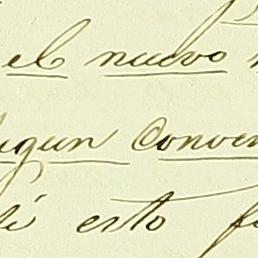 el nuevo
segun conven
esto